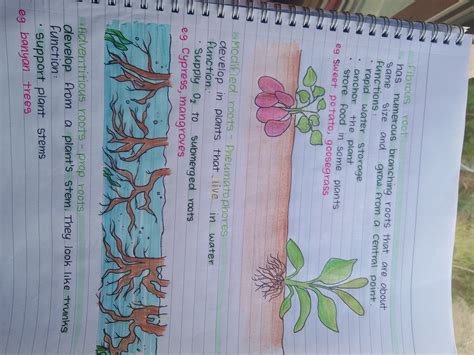 Fibrous root
has numerous branching roots that are about
same size and grow from a central point.
Functions:
• rapid water storage
• anchor the plant
• store food in some plants
eg sweet potato, goosegrass
Modified roots - Pneumatophores
develop in plants that live in water
function:
• supply O₂ to submerged roots
eg Cypress, mangroves
Adventitious roots - prop roots
develop from a plant's stem. They look like trunks
function:
• support plant stems
eg banyan trees